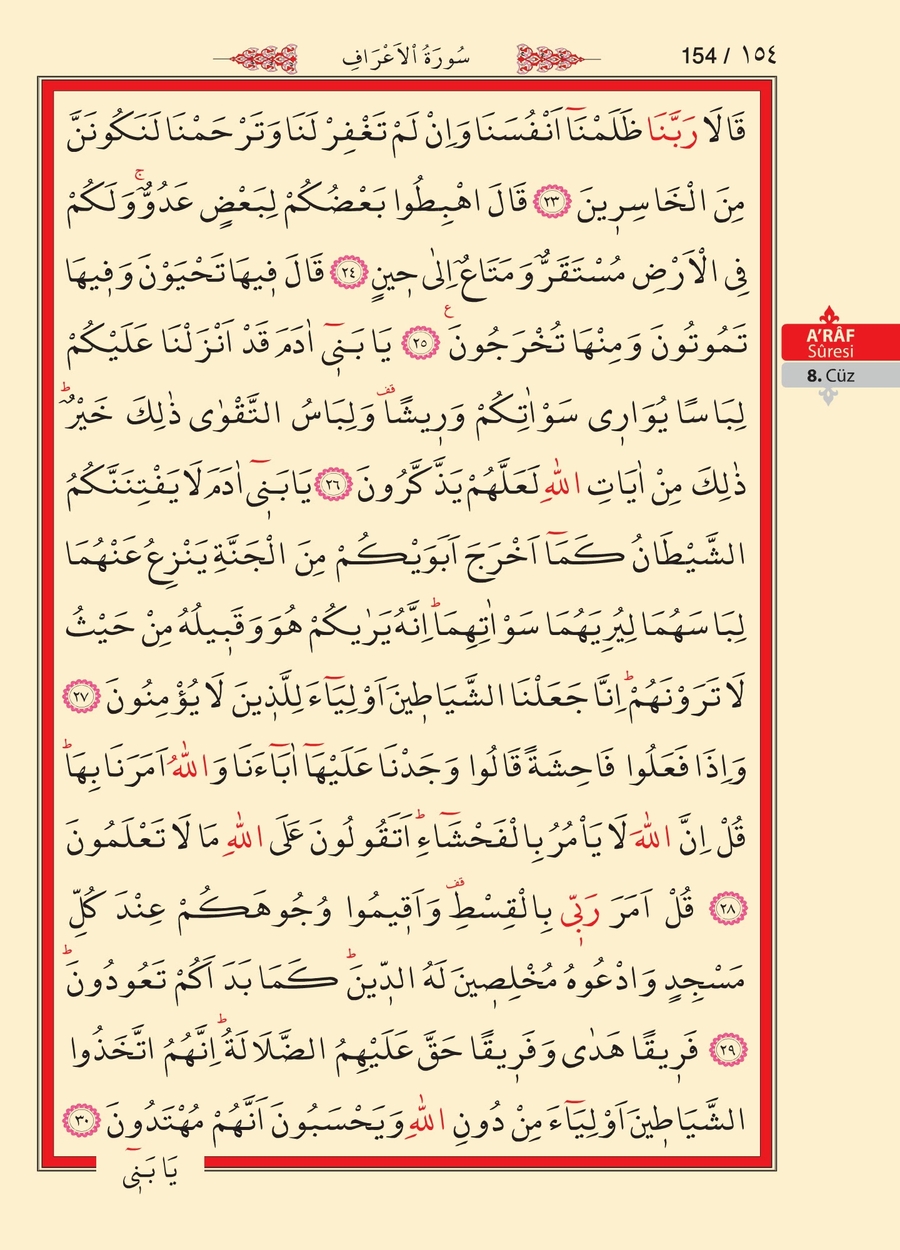 سُورَةُ الْاَعْرَافِ
154 / ١٥٤
قَالَا رَبَّنَا ظَلَمْنَٓا اَنْفُسَنَا وَاِنْ لَمْ تَغْفِرْ لَنَا وَتَرْحَمْنَا لَنَكُونَنَّ
مِنَ الْخَاسِر۪ينَ ﴿٢٣﴾ قَالَ اهْبِطُوا بَعْضُكُمْ لِبَعْضٍ عَدُوٌّۚ وَلَكُمْ
فِي الْاَرْضِ مُسْتَقَرٌّ وَمَتَاعٌ اِلٰى ح۪ينٍ ﴿٢٤﴾ قَالَ ف۪يهَا تَحْيَوْنَ وَف۪يهَا
تَمُوتُونَ وَمِنْهَا تُخْرَجُونَ ع ﴿٢٥﴾ يَا بَن۪ٓي اٰدَمَ قَدْ اَنْزَلْنَا عَلَيْكُمْ
لِبَاسًا يُوَار۪ي سَوْاٰتِكُمْ وَر۪يشًاۜ قف وَلِبَاسُ التَّقْوٰى ذٰلِكَ خَيْرٌۜ
ذٰلِكَ مِنْ اٰيَاتِ اللّٰهِ لَعَلَّهُمْ يَذَّكَّرُونَ ﴿٢٦﴾ يَا بَن۪ٓي اٰدَمَ لَا يَفْتِنَنَّكُمُ
الشَّيْطَانُ كَمَٓا اَخْرَجَ اَبَوَيْكُمْ مِنَ الْجَنَّةِ يَنْزِعُ عَنْهُمَا
لِبَاسَهُمَا لِيُرِيَهُمَا سَوْاٰتِهِمَاۜ اِنَّهُ يَرٰيكُمْ هُوَ وَقَب۪يلُهُ مِنْ حَيْثُ
لَا تَرَوْنَهُمْۜ اِنَّا جَعَلْنَا الشَّيَاط۪ينَ اَوْلِيَٓاءَ لِلَّذ۪ينَ لَا يُؤْمِنُونَ ﴿٢٧﴾
وَاِذَا فَعَلُوا فَاحِشَةً قَالُوا وَجَدْنَا عَلَيْهَٓا اٰبَٓاءَنَا وَاللّٰهُ اَمَرَنَا بِهَاۜ
قُلْ اِنَّ اللّٰهَ لَا يَاْمُرُ بِالْفَحْشَٓاءِۜ اَتَقُولُونَ عَلَى اللّٰهِ مَا لَا تَعْلَمُونَ
﴿٢٨﴾ قُلْ اَمَرَ رَبّ۪ي بِالْقِسْطِ قف وَاَق۪يمُوا وُجُوهَكُمْ عِنْدَ كُلِّ
مَسْجِدٍ وَادْعُوهُ مُخْلِص۪ينَ لَهُ الدّ۪ينَۜ كَمَا بَدَاَكُمْ تَعُودُونَۜ
﴿٢٩﴾ فَر۪يقًا هَدٰى وَفَر۪يقًا حَقَّ عَلَيْهِمُ الضَّلَالَةُۜ اِنَّهُمُ اتَّخَذُوا
الشَّيَاط۪ينَ اَوْلِيَٓاءَ مِنْ دُونِ اللّٰهِ وَيَحْسَبُونَ اَنَّهُمْ مُهْتَدُونَ ﴿٣٠﴾
يَا بَن۪ٓي
A’RÂF
Sûresi
8. Cüz